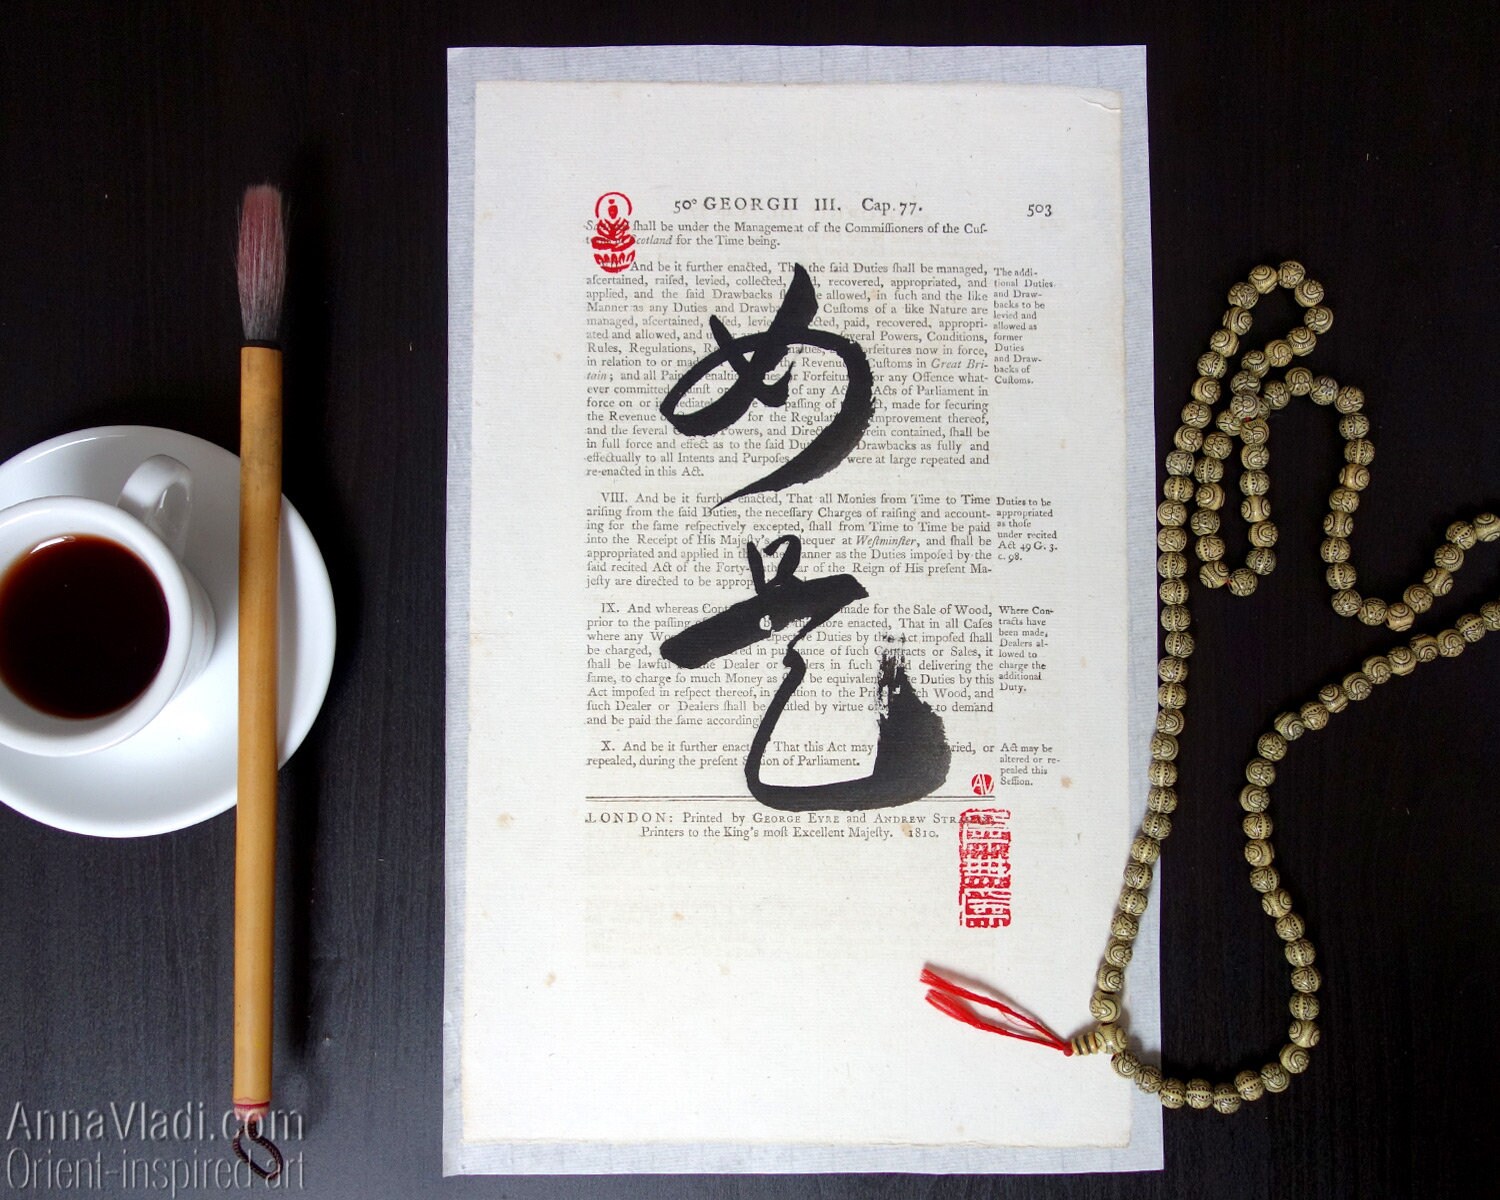 50° GEORGII III. Cap. 77.
503
ſhall be under the Management of the Commiſſioners of the Cuſ-
Scotland for the Time being.
And be it further enacted, That the ſaid Duties ſhall be managed,
aſcertained, raiſed, levied, collected, recovered, appropriated, and
applied, and the ſaid Drawbacks allowed, in ſuch and the like
Manner as any Duties and Cuſtoms of a like Nature are
managed, aſcertained, paid, recovered, appropri-
ated and allowed, and Powers, Conditions,
Rules, Regulations, now in force,
in relation to or the Cuſtoms in Great Bri-
tain; and all or any Offence what-
ever committed of any Acts of Parliament in
force on or paſſing of made for ſecuring
the Revenue for the improvement thereof,
and the ſeveral Powers, and contained, ſhall be
in full force and effect as to the ſaid Drawbacks as fully and
effectually to all Intents and Purpoſes were at large repeated and
re-enacted in this Act.
The addi-
tional Duties
and Draw-
backs to be
levied and
allowed as
former
Duties
and Draw-
backs of
Cuſtoms.
VIII. And be it further enacted, That all Monies from Time to Time
ariſing from the ſaid Duties, the neceſſary Charges of raiſing and account-
ing for the ſame reſpectively excepted, ſhall from Time to Time be paid
into the Receipt of His Majeſty's at Weſtminſter, and ſhall be
appropriated and applied in the Manner as the Duties impoſed by the
ſaid recited Act of the of the Reign of His preſent Ma-
jeſty are directed to be
Duties to be
appropriated
as thoſe
under recited
Act 49 G. 3.
c. 98.
IX. And whereas made for the Sale of Wood,
prior to the paſſing enacted, That in all Caſes
where any Duties by this Act impoſed ſhall
be charged, in of ſuch Contracts or Sales, it
ſhall be lawful Dealer or in ſuch delivering the
ſame, to charge ſo much Money as be Duties by this
Act impoſed in reſpect thereof, in to the Wood, and
ſuch Dealer or Dealers ſhall be by virtue to demand
and be paid the ſame
Where Con-
tracts have
been made,
Dealers al-
lowed to
charge the
additional
Duty.
X. And be it further That this Act may or
repealed, during the preſent of Parliament.
Act may be
altered or re-
pealed this
Seſſion.
AV
LONDON: Printed by GEORGE EYRE and ANDREW
Printers to the King's moſt Excellent Majeſty. 1810.
AnnaVladi.com
Orient-inspired art